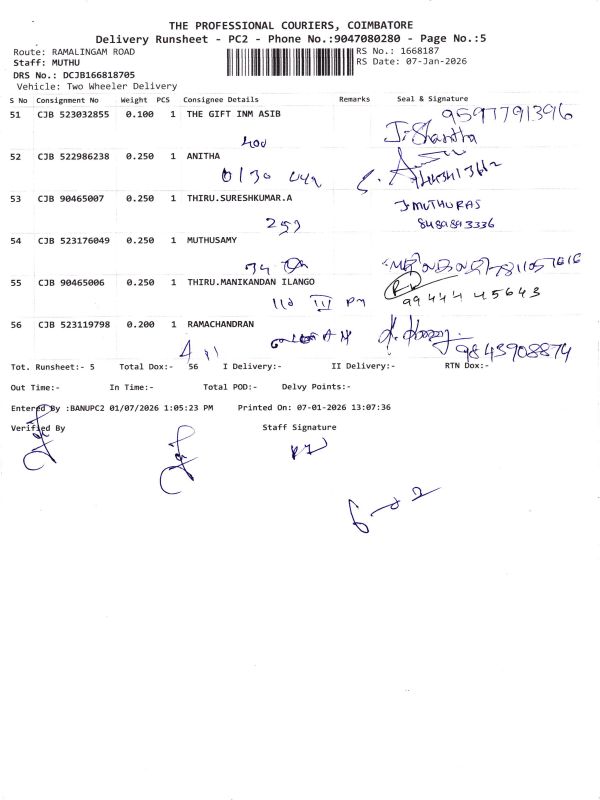 THE PROFESSIONAL COURIERS, COIMBATORE
Delivery Runsheet - PC2 - Phone No.:9047080280 - Page No.:5
Route: RAMALINGAM ROAD RS No.: 1668187
Staff: MUTHU RS Date: 07-Jan-2026
DRS No.: DCJB166818705
Vehicle: Two Wheeler Delivery
S No Consignment No Weight PCS Consignee Details Remarks Seal & Signature
51 CJB 523032855 0.100 1 THE GIFT INM ASIB 9597791396
400 J. Shantha
52 CJB 522986238 0.250 1 ANITHA
53 CJB 90465007 0.250 1 THIRU.SURESHKUMAR.A J.MUTHURAS
253 8489893336
54 CJB 523176049 0.250 1 MUTHUSAMY
55 CJB 90465006 0.250 1 THIRU.MANIKANDAN ILANGO
99444 45643
56 CJB 523119798 0.200 1 RAMACHANDRAN
9843908874
Tot. Runsheet:- 5 Total Dox:- 56 I Delivery:- II Delivery:- RTN Dox:-
Out Time:- In Time:- Total POD:- Delvy Points:-
Entered By :BANUPC2 01/07/2026 1:05:23 PM Printed On: 07-01-2026 13:07:36
Verified By Staff Signature